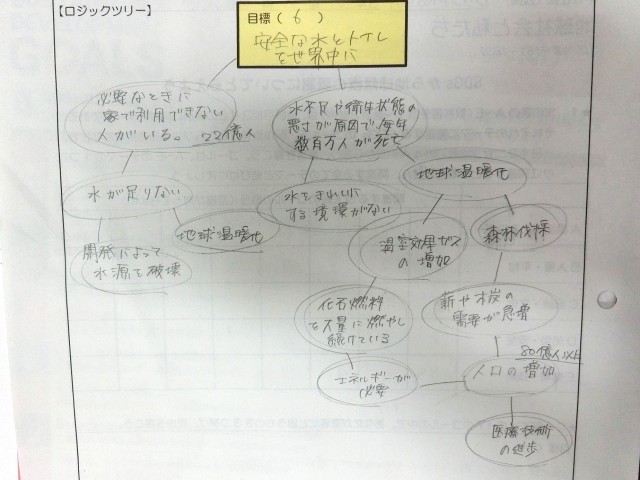 【ロジックツリー】
目標（ 6 ）
安全な水とトイレ
を世界中に
必要なときに
家で利用できない
人がいる。 22億人
水不足や衛生状態の
悪さが原因で、毎年
数百万人が死亡
水が足りない
地球温暖化
開発によって
水源を破壊
水をきれいに
する環境がない
地球温暖化
温室効果ガス
の増加
森林伐採
化石燃料
を大量に燃やし
続けている
薪や木炭の
需要が急増
エネルギーが
必要
80億人以上
人口の増加
医療技術
の進歩